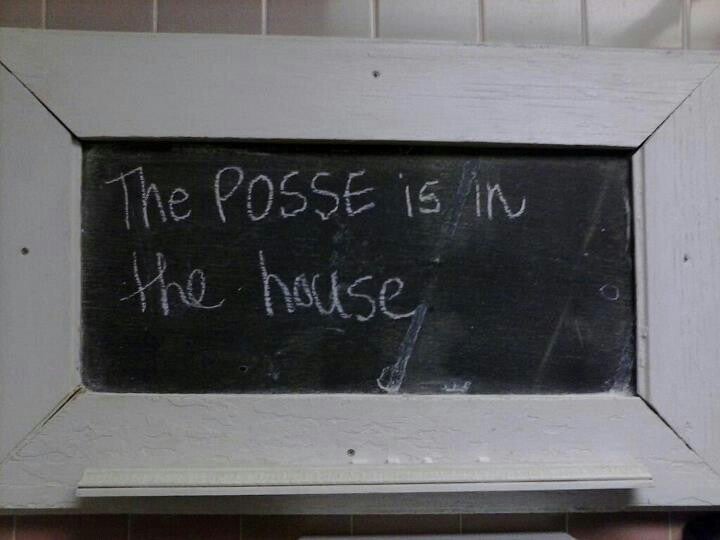 The POSSE is in
the house